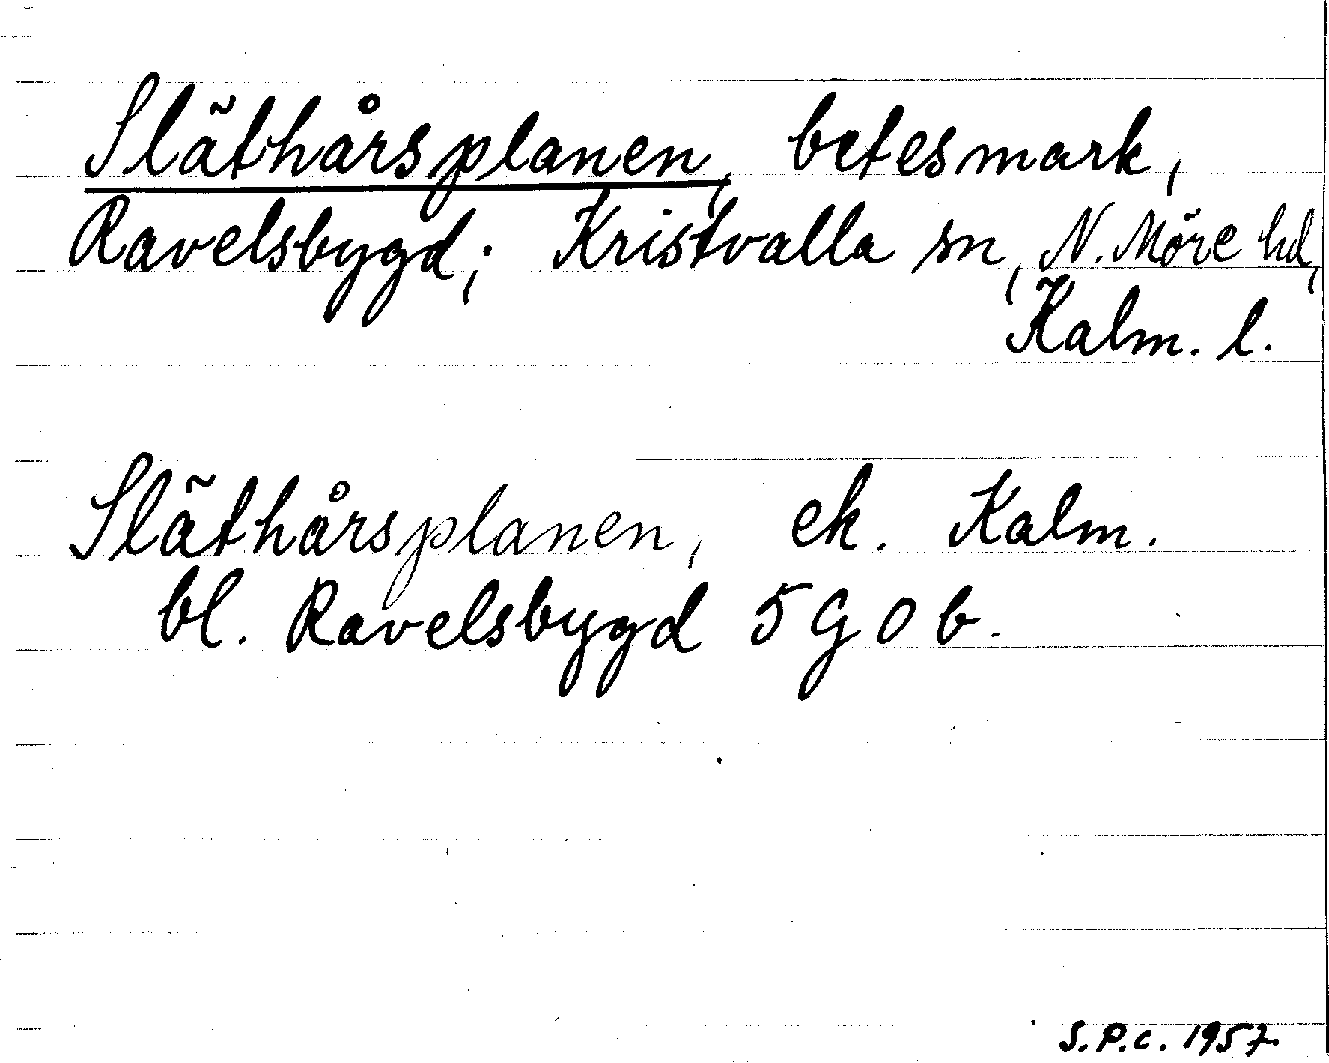 Släthårsplanen, betesmark,
Ravelsbygd; Kristvalla sn, N. Möre hd,
Kalm. l.
Släthårsplanen, ek. Kalm.
bl. Ravelsbygd 5 G 0 b.
S.P.C. 1957